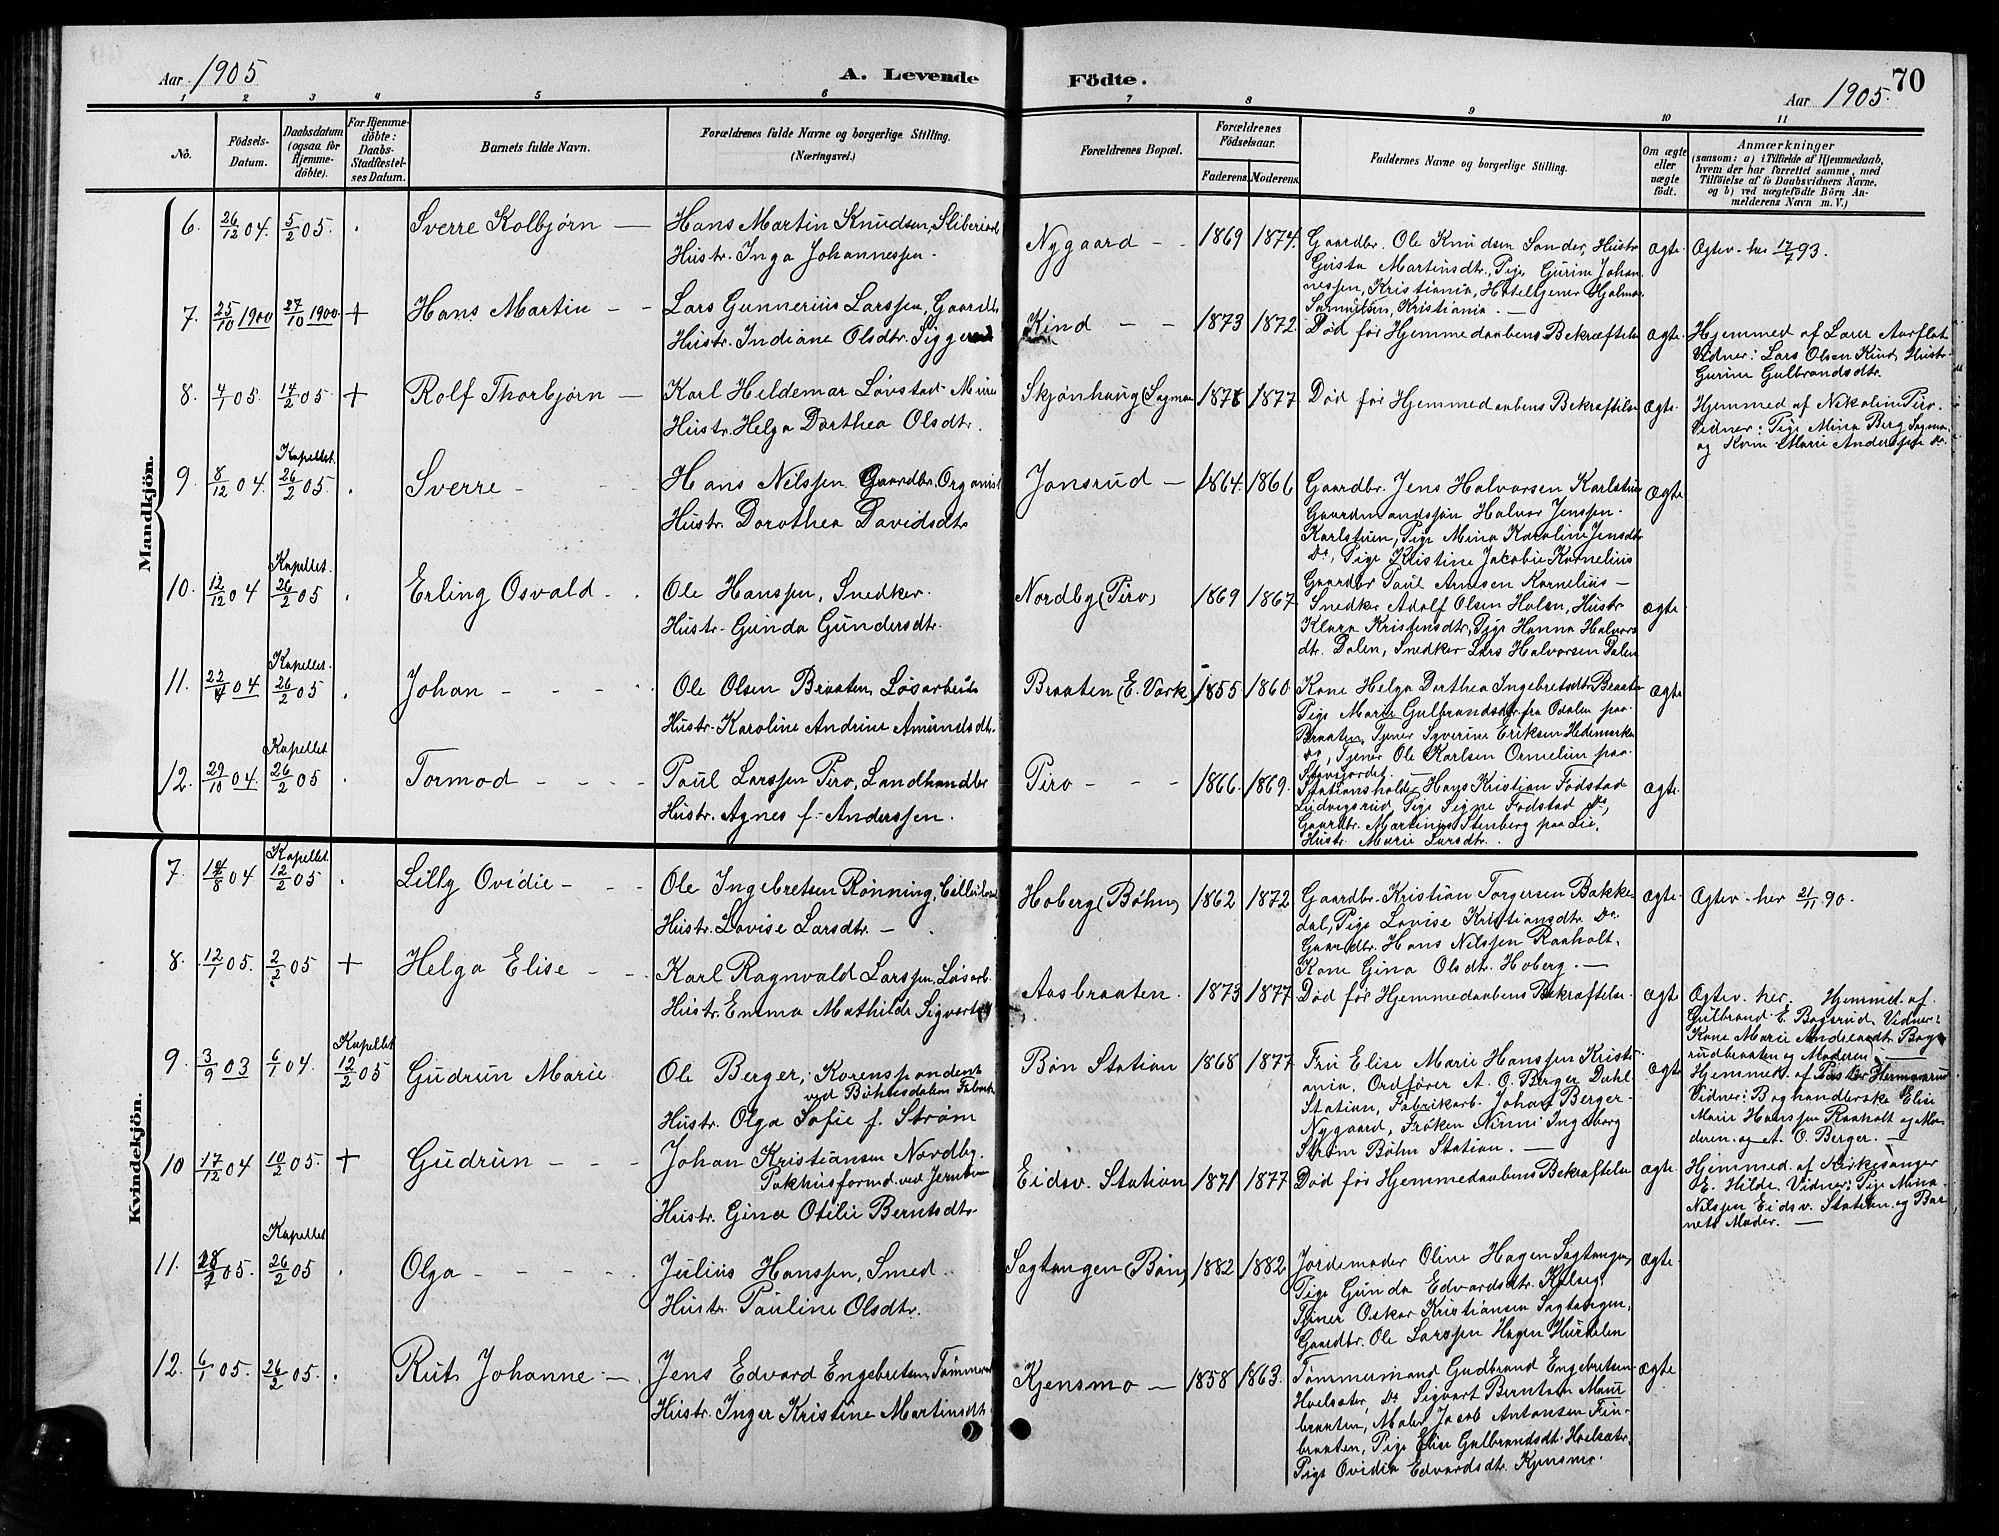 Aar 1905
A. Levende Födte.
Aar 1905.
70
1 2 3 4 5 6 7 8 9 10 11
No.
Födsels-
Datum.
Daabsdatum
(ogsaa for
Hjemme-
döbte).
For Hjemme-
döbte:
Daabs-
Stadfæstel-
ses Datum.
Barnets fulde Navn.
Forældrenes fulde Navne og borgerlige Stilling.
(Næringsvei.)
Forældrenes Bopæl.
Forældrenes
Födselsaar.
Faderens. Moderens.
Faddernes Navne og borgerlige Stilling.
Om ægte
eller
uægte
født.
Anmærkninger
(saasom: a) i Tilfælde af Hjemmedaab,
hvem der har forrettet samme, med
Tilföielse af to Daabsvidners Navne,
og b) ved uægtefödte Börn An-
melderens Navn m. V.)
Mandkjön.
6. 26/12 04. 5/2 05. Sverre Kolbjørn
Hans Martin Knudsen,
Hustr. Inga Johannessen.
Nygaard 1869 1874.
Gaardbr. Ole Knudsen Sander, Hustr
Gusta Martinsdtr, Pige Gurine Johan
nessen, Kristiania, Hoteltjener Hjalmar
Samuelsen, Kristiania.
Ægte. Ægtev. her 17/7 93.
7. 25/10 1900 27/10 1900. + Hans Martin
Lars Gunnerius Larssen, Gaardb
Hustr. Indiane Olsdtr.
Kind 1873 1872.
Død før Hjemmedaabens Bekræftelse
Ægte.
Hjemmed af Lærer Aarflot
Vidner: Lars Olsen Kind, Hustr
Gurine Gulbrandsdtr.
8. 4/1 05. 14/2 05 + Rolf Thorbjørn
Karl Hildemar Løvstad Murer
Hustr. Helga Dorthea Olsdtr.
Skjønhaug 1877.
Død før Hjemmedaabens Bekræftelse
Ægte.
Hjemmed af Nikoline Piro.
Vidner: Pige Mina Berg
og Kone Marie Anderssen do.
9. 8/12 04. Kapellet. 26/2 05. Sverre
Hans Nilssen Gaardbr. Organist
Hustr. Dorothea Davidsdtr
Jonsrud 1864. 1866
Gaardbr. Jens Halvorsen Karlstuen
Gaardmandssøn Halvor Jenssen
Karlstuen, Pige Mina Karoline Jensdtr
Do, Pige Kristine Jacobie Kornelius
Gaardbr Paul Arnesen Kornelius
Ægte
10. 12/12 04 Kapellet. 26/2 05 Erling Osvald
Ole Hanssen, Snedker.
Hustr. Gunda Gundersdtr.
Nordby (Piro) 1869 1867
Snedker Adolf Olsen Holen, Hustr
Klara Kristensdtr, Pige Hanna Halvors
dtr. Dalen, Snedker Lars Halvorsen Dalen
Ægte
11. Kapellet. 26/2 05. Johan
Ole Olsen Braaten, Løsarbeider
Hustr. Karoline Andrine Amundsdtr.
Braaten (E. Værk) 1855 1860.
Kone Helga Dorthea Ingebretsdtr Braaten
Pige Marie Gulbrandsdtr fra Odalen paa
Braaten, Tjener Syverine Eriksen Hedemarken
Do, Tjener Ole Karlsen Ormelien paa
Ægte
12. 29/10 04. Kapellet 26/2 05 Tormod
Paul Larssen Piro, Landhandler
Hustr. Agnes f. Anderssen.
Piro 1866. 1869.
Stationsholder Hans Kristian Fodstad
Ludvigsrud, Pige Signe Fodstad Do,
Gaardbr. Martinius Stenberg paa Lie,
Hustr. Marie Larsdtr.
Ægte.
Kvindekjön.
7. 04 Kapellet 12/2 05. Lilly Ovidie
Ole Ingebretsen Rønning,
Hustr. Lovise Larsdtr.
Hoberg (Bøhn) 1862 1872
Gaardbr. Kristian Torgersen Bakke-
dal, Pige Lovise Kristiansdtr Do.
Gaardbr. Hans Nilssen Raaholt.
Kone Gina Olsdtr. Hoberg.
Ægte. Ægtev. her 21/11 90.
8. 12/1 05. 2/2 05 + Helga Elise
Karl Ragnvald Larssen, Løsarb.
Hustr. Emma Mathilde
Aasbraaten. 1873 1877
Død før Hjemmedaabens Bekræftelse.
Ægte
Ægtev. her. Hjemmed. af
Gulbrand E. Bagsrud, Vidner:
Kone Marie Andreasdtr Bag-
rudbraaten og Moderen
9. 3/9 03 6/1 04. Kapellet 12/2 05 Gudrun Marie
Ole Berger, Korrespondent
ved Bøhnsdalen Fabrik
Hustr. Olga Sofie f. Strøm
Bøn Station 1868 1877
Fru Elise Marie Hanssen Kristi-
ania, Ordfører A. O. Berger Dahl
Station, Fabrikarb. Johan Berger
Nygaard, Frøken Ninni Ingeborg
Strøm Bøhn Station.
Ægte
Hjemmed. af Pastor
Vidner: Boghandlerske Elise
Marie Hanssen Raaholt og Mo-
deren og A. O. Berger.
10 17/12 04 10/2 05. + Gudrun
Johan Kristiansen Nordby.
Pakhusformd. ved Jernbanen
Hustr. Gina Otilie Berntsdtr
Eidsv. Station 1871 1877
Død før Hjemmedaabens Bekræftelse
Ægte
Hjemmed. af Kirkesanger
E. Hilde. Vidner: Pige Mina
Nilssen Eidsv. Station og Bar
nets Moder.
11. 05. Kapellet 26/2 05 Olga
Julius Hanssen, Smed.
Hustr. Pauline Olsdtr.
Sagtangen (Bøn) 1882 1882
Jordemoder Oline Hagen Sagtangen,
Pige Gunda Edvardsdtr.
Tjener Oskar Kristiansen Sagtangen,
Gaardbr. Ole Larssen Hagen Hurdalen
Ægte.
12. 6/1 05. 26/2 05. Rut Johanne
Jens Edvard Engebretsen, Tømmermand
Hustr. Inger Kristine Martinsdtr
Kjensmo 1858 1863.
Tømmermand Gudbrand Engebretsen
Hoelsæter, Do Sigvart Berntsen
braaten, Maler Jacob Antonsen Fin-
braaten, Pige Elise Gulbrandsdtr. Hoelsæter,
Pige Ovidia Edvardsdtr. Kjensmo.
Ægte